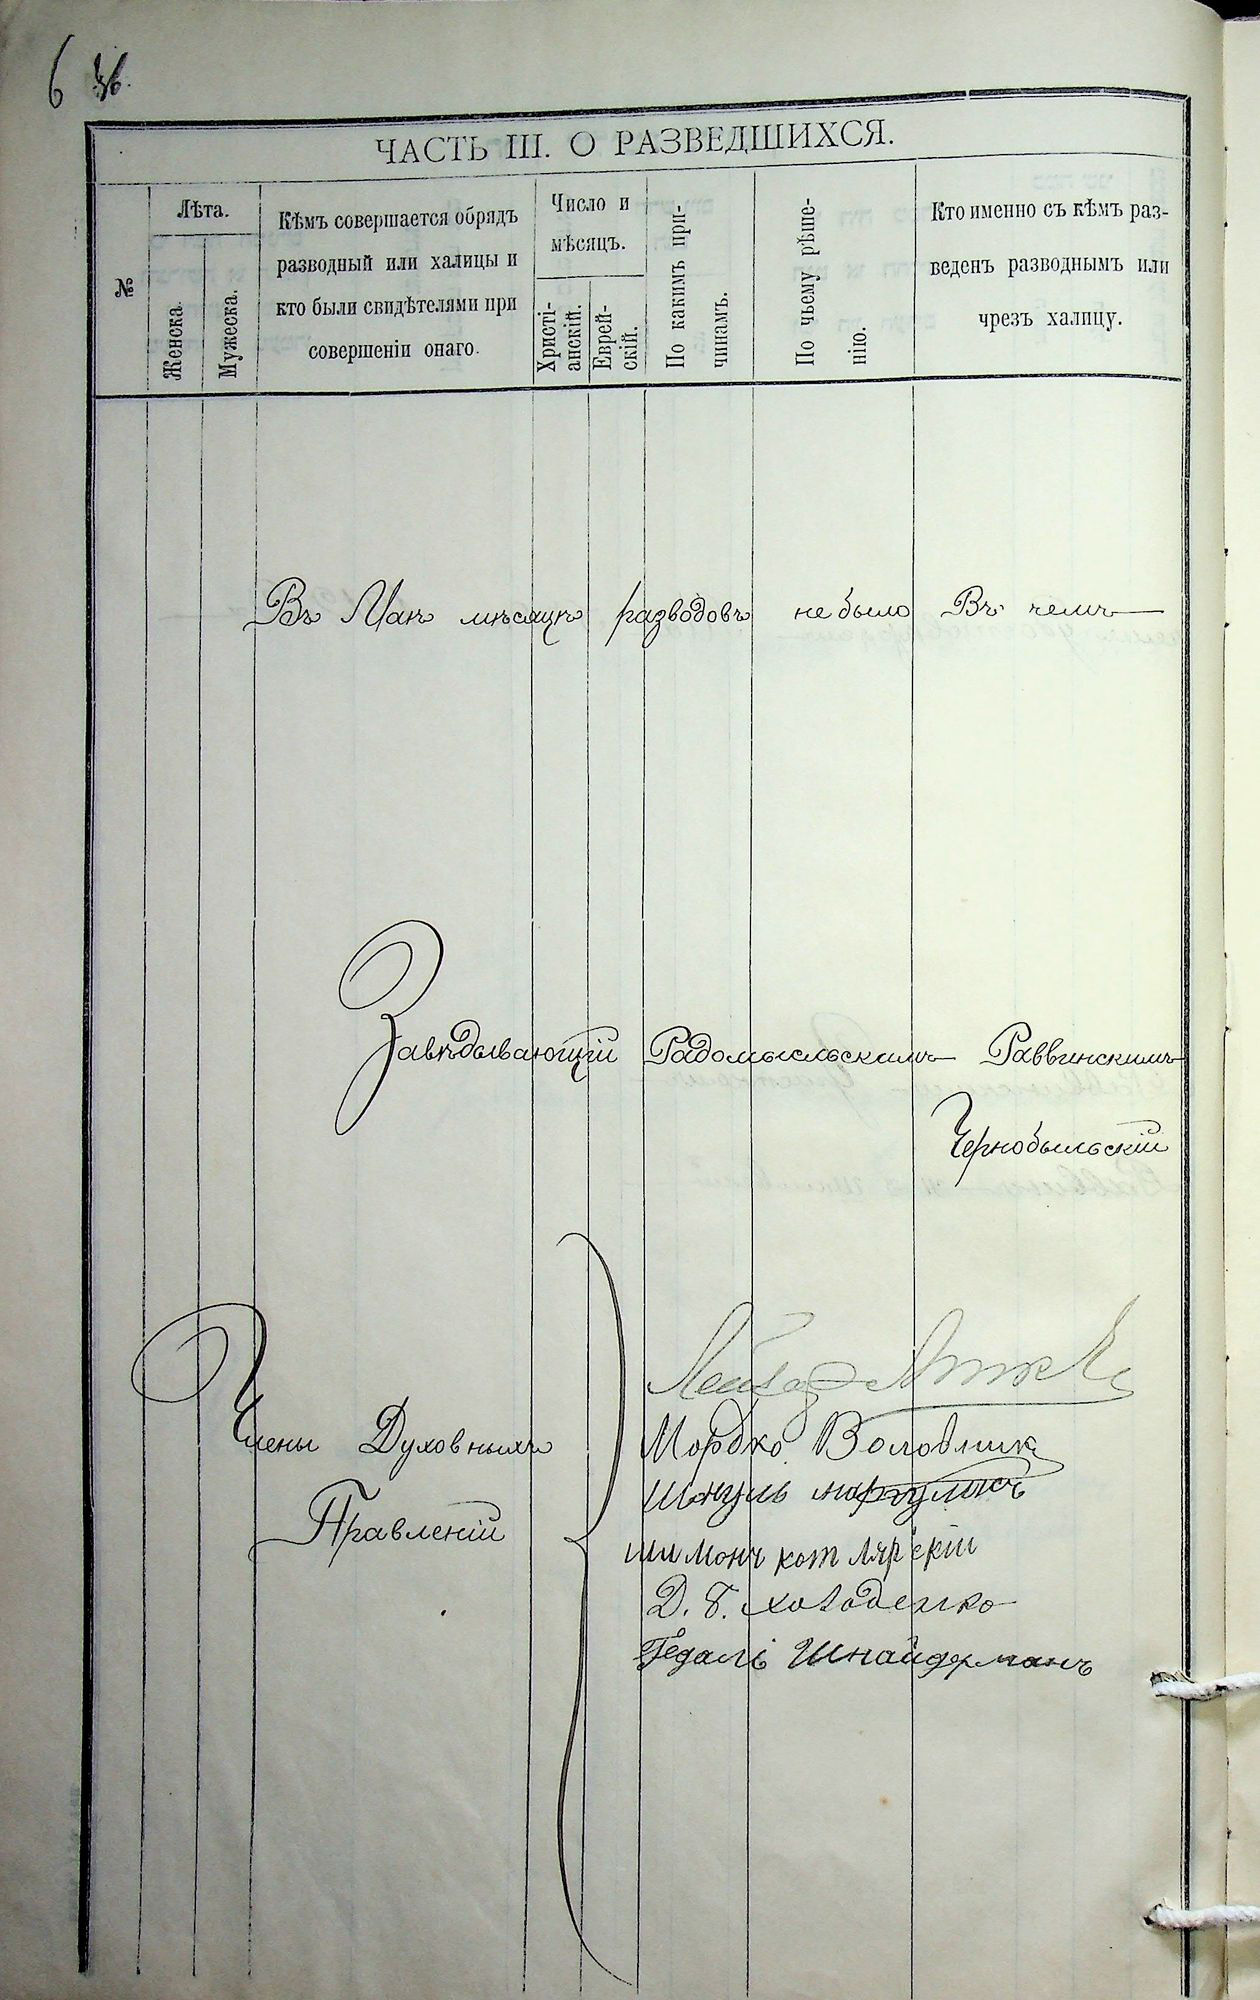 6
ЧАСТЬ III. О РАЗВЕДШИХСЯ.
№
Лѣта.
Женска.
Мужеска.
Кѣмъ совершается обрядъ
разводный или халицы и
кто были свидѣтелями при
совершеніи онаго.
Число и
мѣсяцъ.
Христі-
анскій.
Еврей-
скій.
По какимъ при-
чинамъ.
По чьему рѣше-
нію.
Кто именно съ кѣмъ раз-
веденъ разводнымъ или
чрезъ халицу.
Въ Маѣ мѣсяцѣ разводовъ не было Въ чемъ
Завѣдывающій Радомысльскимъ Раввинскимъ
Чернобыльскій
Члены Духовныхъ
Правленій
Лейзор
Мордко Воловник
Шмуль маргулисъ
шимонъ котлярскій
Д. Б. Холоденко
Гедалі Шнайдерманъ